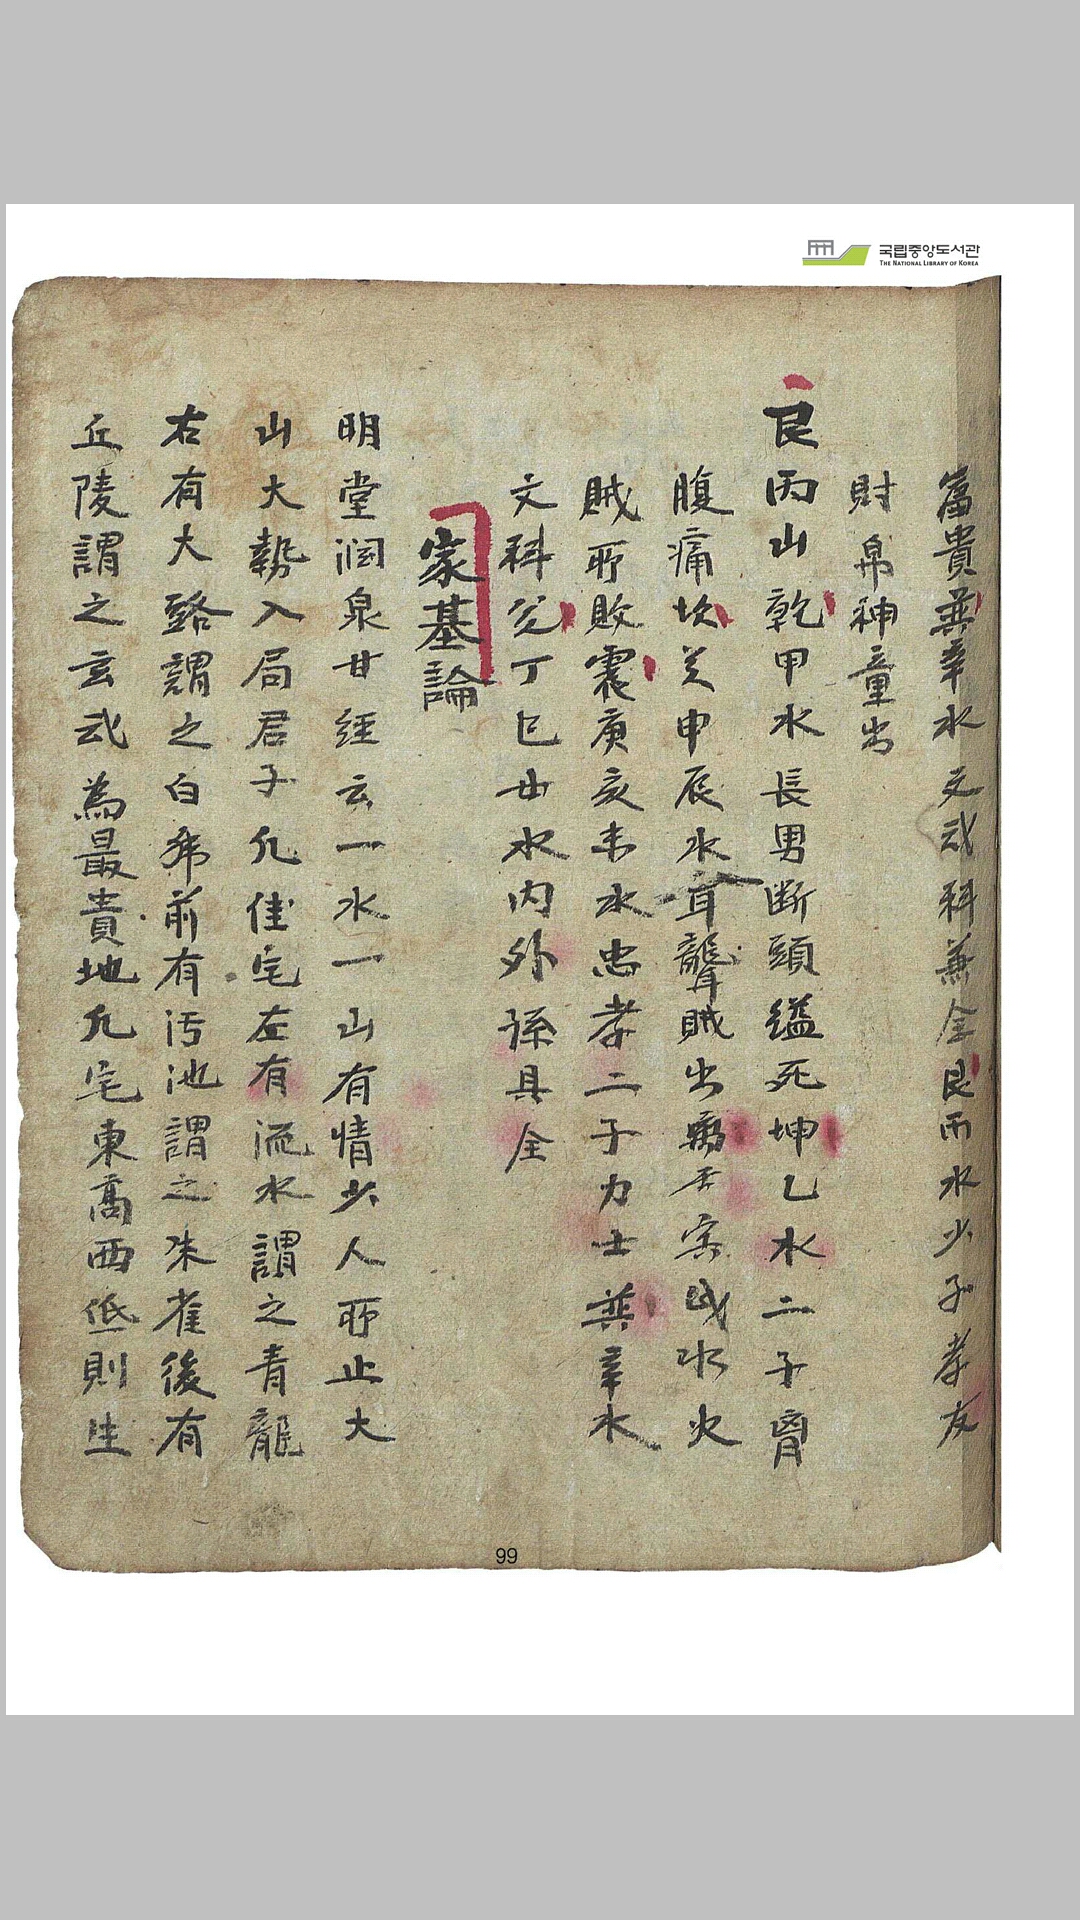 국립중앙도서관
THE NATIONAL LIBRARY OF KOREA
富貴巽辛水文武科兼全艮丙水少子孝友
財帛神童出
艮丙山乾甲水長男斷頭縊死坤乙水二子胷
腹痛坎癸申辰水耳聾賊出水火
賊所敗震庚亥未水忠孝二子力士巽辛水
文科兌丁巳丑水內外孫具全
家基論
明堂潤泉甘経云一水一山有情少人所止大
山大勢入局君子凡佳宅左有流水謂之青龍
右有大路謂之白乕前有汚池謂之朱雀後有
丘陵謂之玄武為最貴地凡宅東高西低則生
99